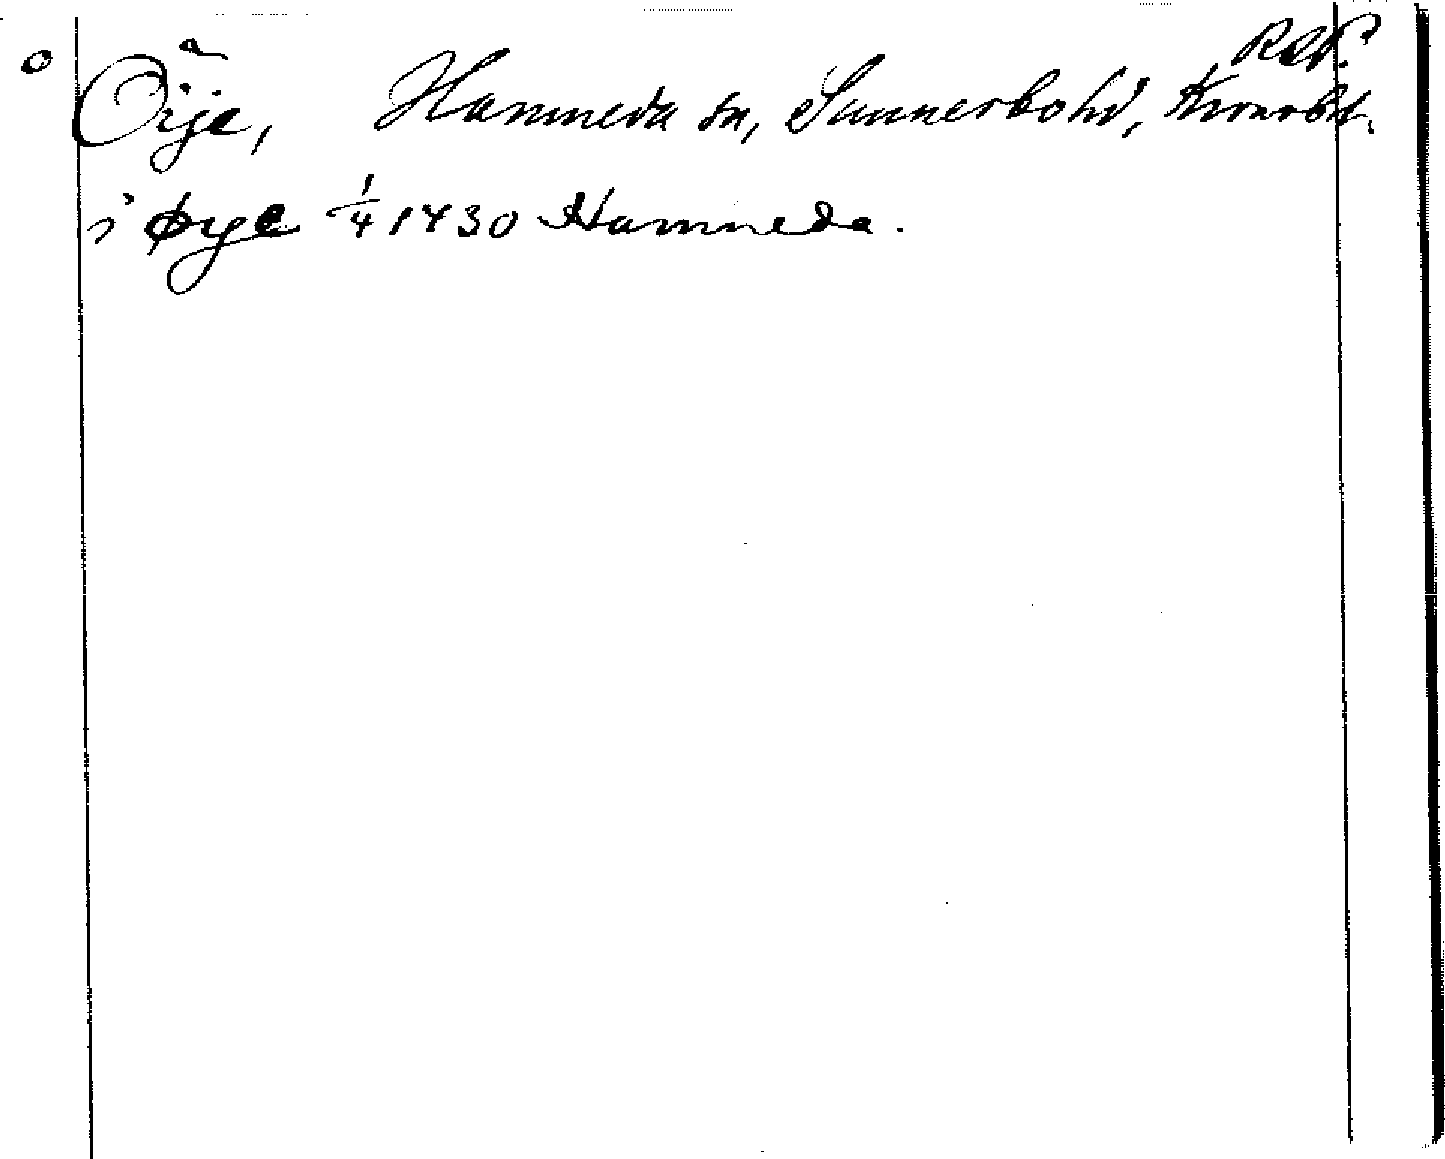 o Öije, Hamneda sn, Sunnerbohd, Kronobl.
i øye 1/4 1430 Hamneda.